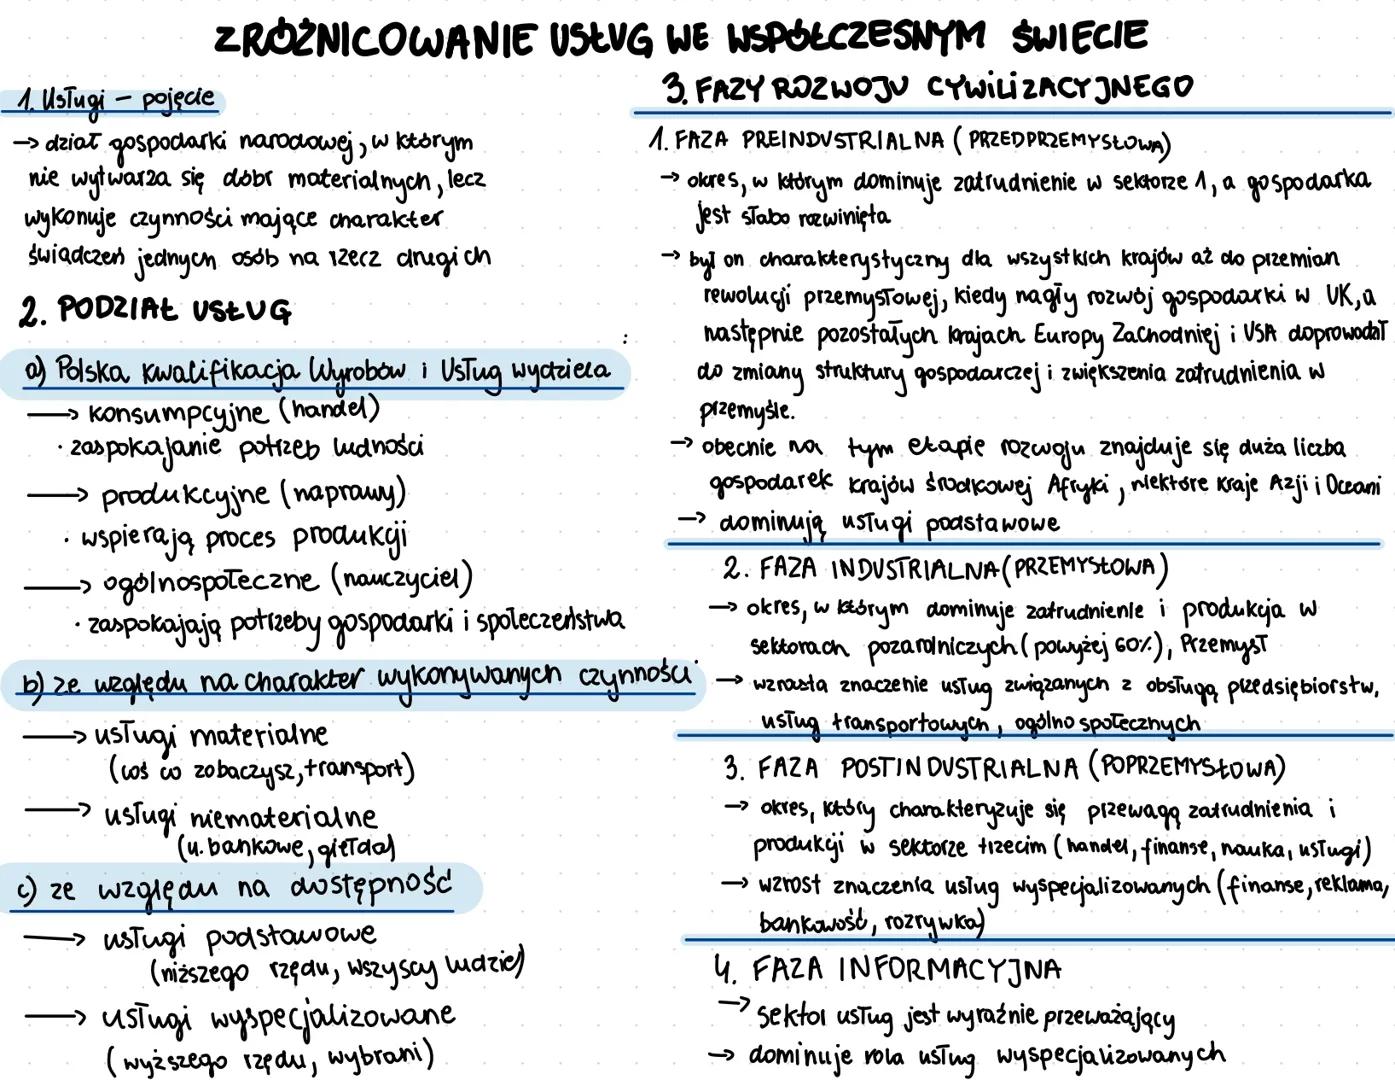 ZRÓŻNICOWANIE USŁUG WE WSPÓŁCZESNYM ŚWIECIE
1. Usługi – pojęcie
→ dział gospodarki narodowej, w którym
nie wytwarza się dóbr materialnych, lecz
wykonuje czynności mające charakter
świadczeń jednych osób na rzecz drugich
2. PODZIAŁ USŁUG
a) Polska Kwalifikacja Wyrobów i Usług wydziela
→ konsumpcyjne (handel)
· zaspokajanie potrzeb ludności
→ produkcyjne (naprawy)
· wspierają proces produkcji
→ ogólnospołeczne (nauczyciel)
· zaspokajają potrzeby gospodarki i społeczeństwa
b) ze względu na charakter wykonywanych czynności
→ usługi materialne
(coś co zobaczysz, transport)
→ usługi niematerialne
(u. bankowe, giełda)
c) ze względu na dostępność
→ usługi podstawowe
(niższego rzędu, wszyscy ludzie)
→ usługi wyspecjalizowane
(wyższego rzędu, wybrani)
3. FAZY ROZWOJU CYWILIZACYJNEGO
1. FAZA PREINDUSTRIALNA (PRZEDPRZEMYSŁOWA)
→ okres, w którym dominuje zatrudnienie w sektorze 1, a gospodarka
jest słabo rozwinięta
→ był on charakterystyczny dla wszystkich krajów aż do przemian
rewolucji przemysłowej, kiedy nagły rozwój gospodarki w UK, a
następnie pozostałych krajach Europy Zachodniej i USA doprowadził
do zmiany struktury gospodarczej i zwiększenia zatrudnienia w
przemyśle.
→ obecnie na tym etapie rozwoju znajduje się duża liczba
gospodarek krajów środkowej Afryki, niektóre kraje Azji i Oceani
→ dominują usługi podstawowe
2. FAZA INDUSTRIALNA (PRZEMYSŁOWA)
→ okres, w którym dominuje zatrudnienie i produkcja w
sektorach pozarolniczych (powyżej 60%), Przemysł
→ wzrasta znaczenie usług związanych z obsługą przedsiębiorstw,
usług transportowych, ogólno społecznych
3. FAZA POSTINDUSTRIALNA (POPRZEMYSŁOWA)
→ okres, który charakteryzuje się przewagą zatrudnienia i
produkcji w sektorze trzecim (handel, finanse, nauka, usługi)
→ wzrost znaczenia usług wyspecjalizowanych (finanse, reklama,
bankowość, rozrywka)
4. FAZA INFORMACYJNA
→ sektor usług jest wyraźnie przeważający
→ dominuje rola usług wyspecjalizowanych